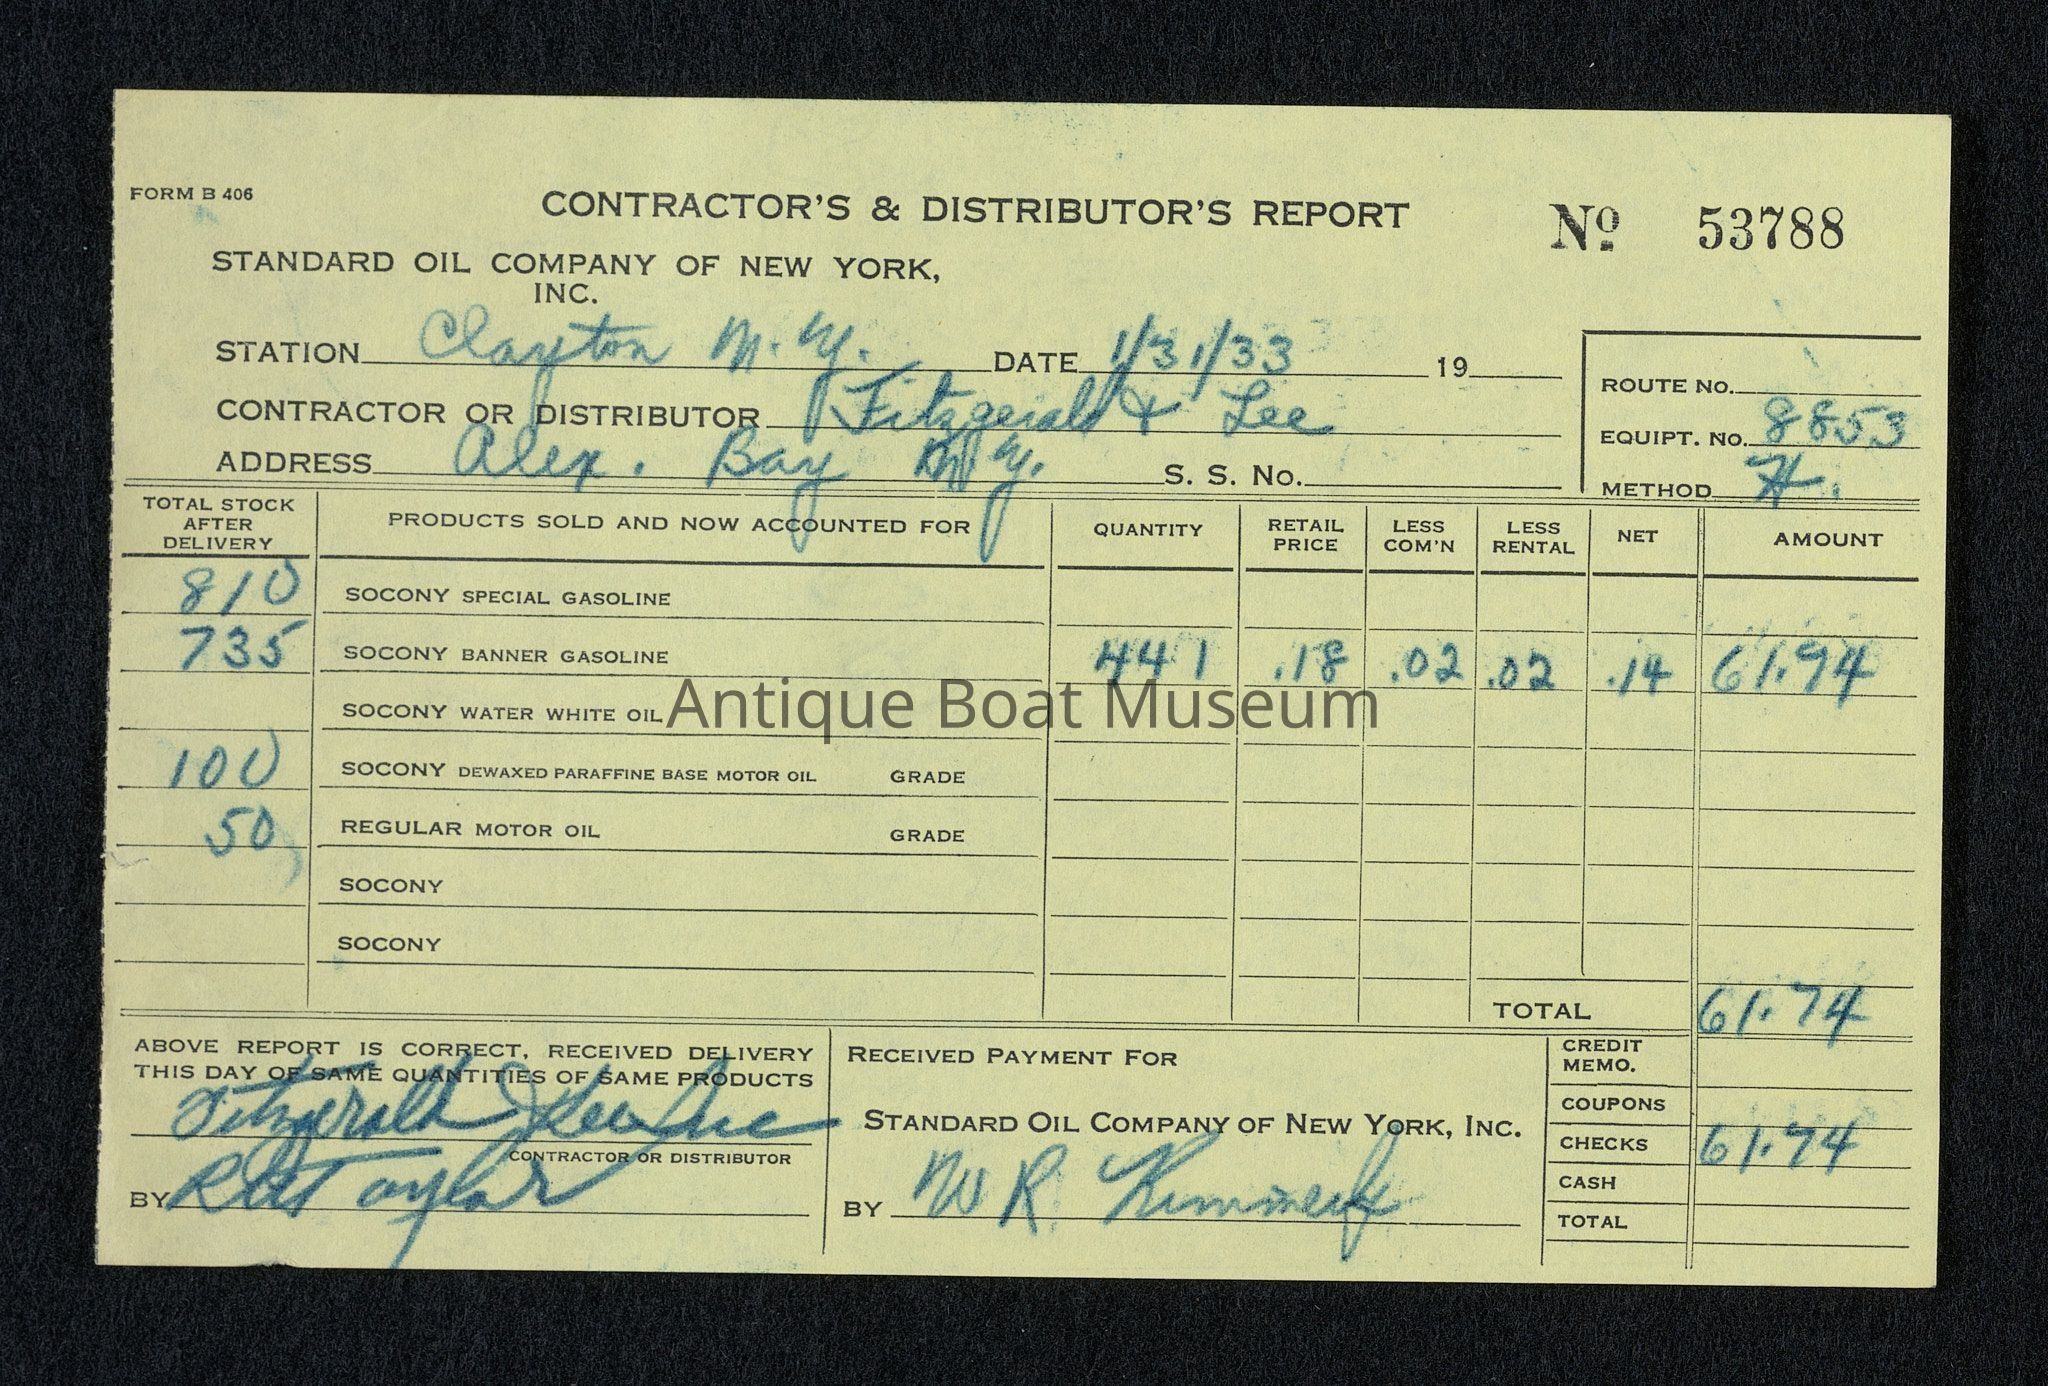 FORM B 406
CONTRACTOR'S & DISTRIBUTOR'S REPORT
Nº 53788
STANDARD OIL COMPANY OF NEW YORK,
INC.
STATION Clayton N.Y. DATE 1/31/33 19
CONTRACTOR OR DISTRIBUTOR Fitzgerald & Lee
ADDRESS Alex. Bay N.Y. S. S. No.
ROUTE NO.
EQUIPT. NO. 8853
METHOD H.
TOTAL STOCK AFTER DELIVERY PRODUCTS SOLD AND NOW ACCOUNTED FOR QUANTITY RETAIL PRICE LESS COM'N LESS RENTAL NET AMOUNT
810 SOCONY SPECIAL GASOLINE
735 SOCONY BANNER GASOLINE 441 .18 .02 .02 .14 61.74
SOCONY WATER WHITE OIL
Antique Boat Museum
100 SOCONY DEWAXED PARAFFINE BASE MOTOR OIL GRADE
50 REGULAR MOTOR OIL GRADE
SOCONY
SOCONY
TOTAL 61.74
ABOVE REPORT IS CORRECT, RECEIVED DELIVERY
THIS DAY OF SAME QUANTITIES OF SAME PRODUCTS
Fitzgerald & Lee Inc
CONTRACTOR OR DISTRIBUTOR
BY Taylor
RECEIVED PAYMENT FOR
STANDARD OIL COMPANY OF NEW YORK, INC.
BY W R
CREDIT MEMO.
COUPONS
CHECKS 61.74
CASH
TOTAL